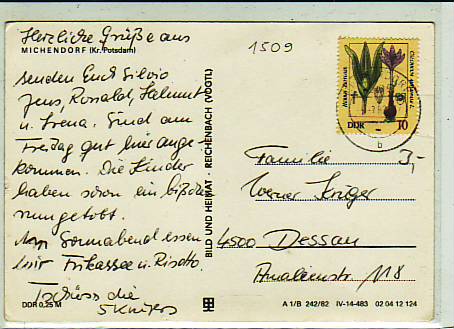 Herzliche Grüße aus
MICHENDORF (Kr. Potsdam)
senden Euch Silvio
Jens, Ronald, Helmut
u. Irena. Sind am
Freitag gut hier ange-
kommen. Die Kinder
haben schon ein bißchen
rumgetobt.
Am Sonnabend essen
wir Frikassee u. Risotto.
Tschüss die
5 Krügers
DDR 0,25 M
BILD UND HEIMAT · REICHENBACH (VOGTL)
1509
DDR 10
b
3,-
Familie
Werner Krüger
4500 Dessau
Amalienstr 118
A 1/B 242/82 IV-14-483 02 04 12 124